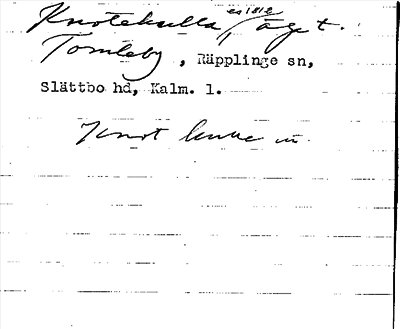 Knotekulla, äget.
es 1812
Tomteby, Räpplinge sn,
Slättbo hd, Kalm. l.
Knot kulle